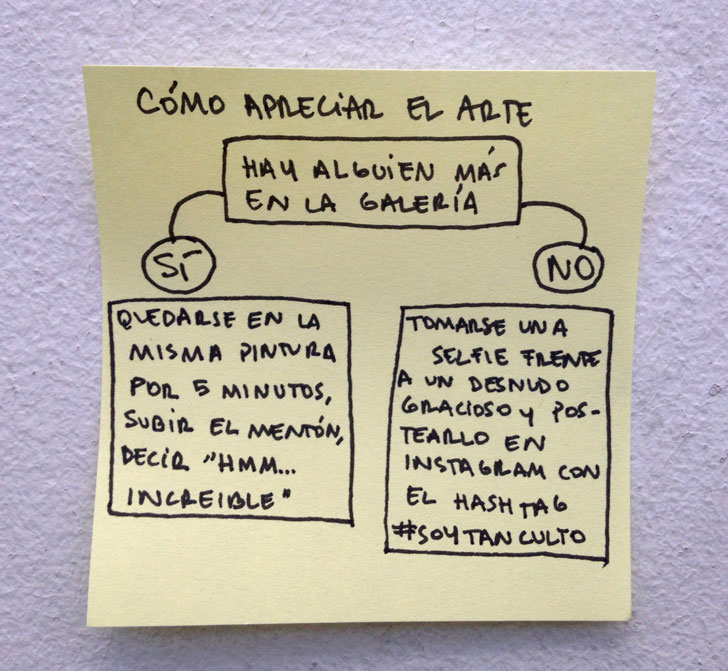 CÓMO APRECIAR EL ARTE
HAY ALGUIEN MÁS
EN LA GALERÍA
SÍ
NO
QUEDARSE EN LA
MISMA PINTURA
POR 5 MINUTOS,
SUBIR EL MENTÓN,
DECIR "HMM...
INCREIBLE"
TOMARSE UNA
SELFIE FRENTE
A UN DESNUDO
GRACIOSO Y POS-
TEARLO EN
INSTAGRAM CON
EL HASHTAG
#SOYTANCULTO